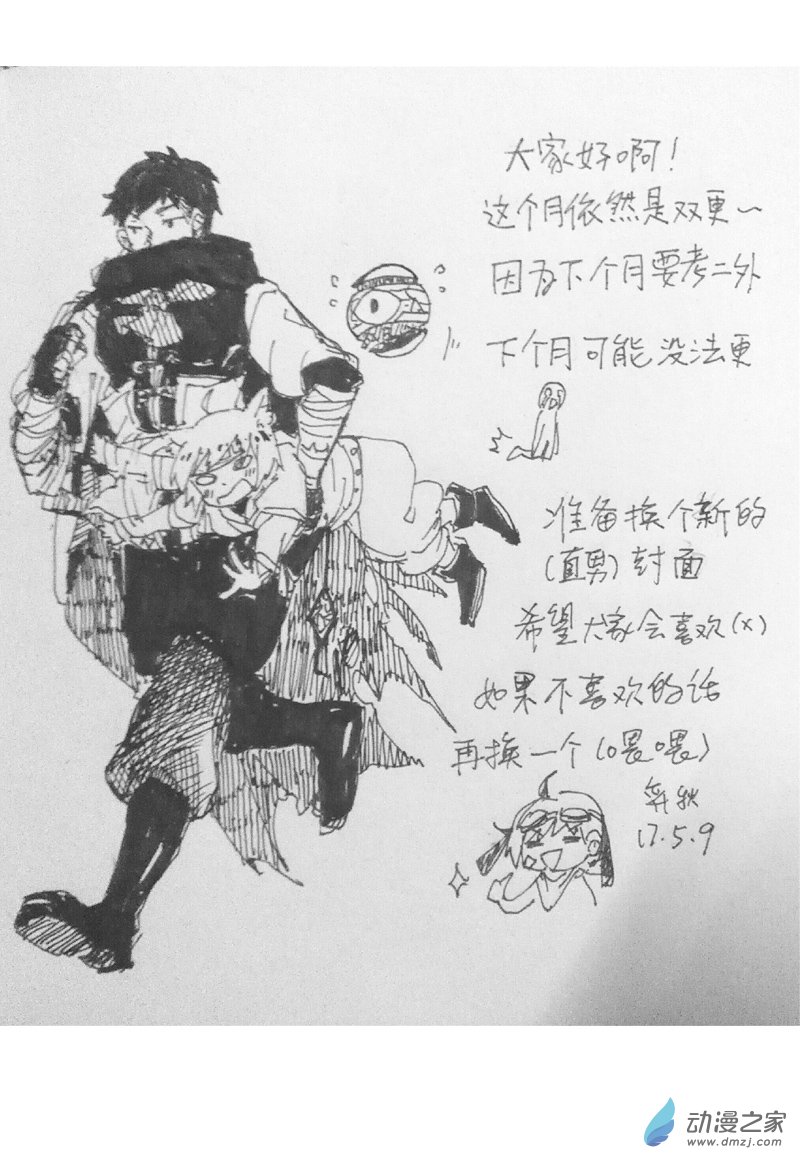 大家好啊!
这个月依然是双更~
因为下个月要考二外
下个月可能没法更
准备换个新的
(直男)封面
希望大家会喜欢(x)
如果不喜欢的话
再换一个(喂喂)
17.5.9
动漫之家
www.dmzj.com